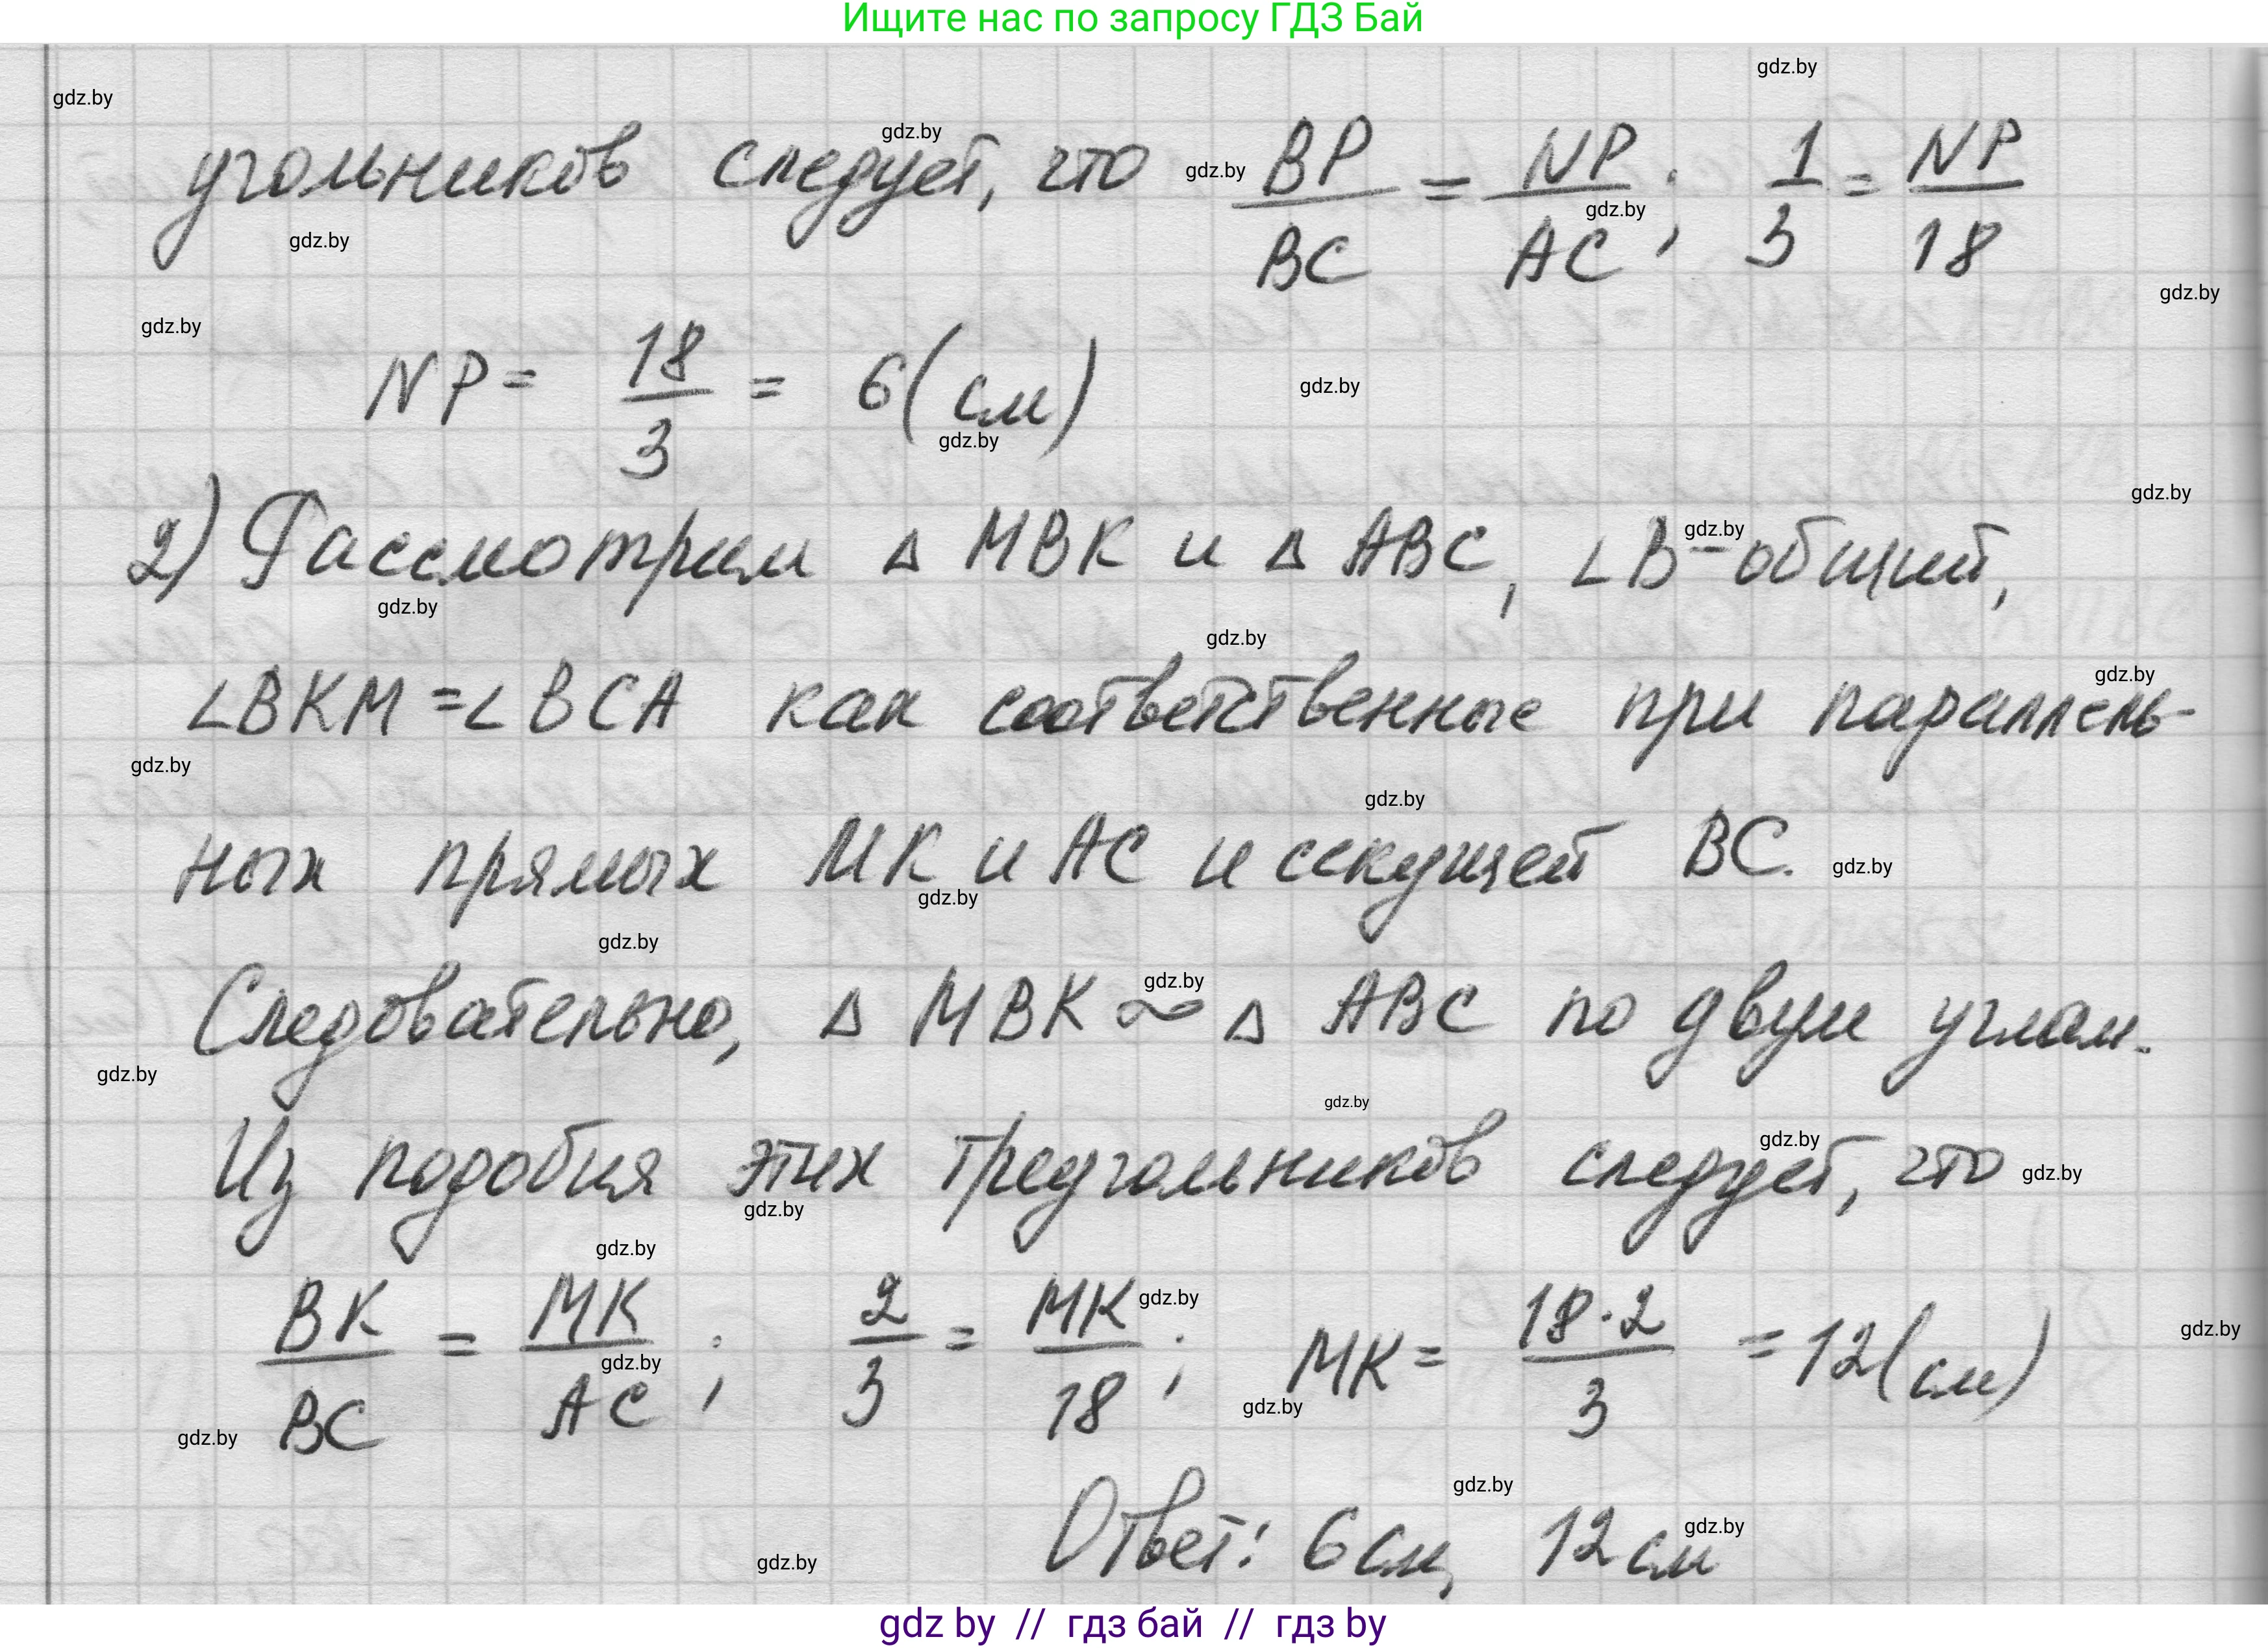 Ищите нас по запросу ГДЗ Бай
угольников следует, что BP/BC = NP/AC; 1/3 = NP/18
NP = 18/3 = 6 (см)
2) Рассмотрим Δ MBK и Δ ABC, ∠B - общий,
∠BKM = ∠BCA как соответственные при параллель-
ных прямых MK и AC и секущей BC.
Следовательно, Δ MBK ∾ Δ ABC по двум углам.
Из подобия этих треугольников следует, что
BK/BC = MK/AC; 2/3 = MK/18; MK = 18·2/3 = 12 (см)
Ответ: 6 см, 12 см
gdz by // гдз бай // гдз by